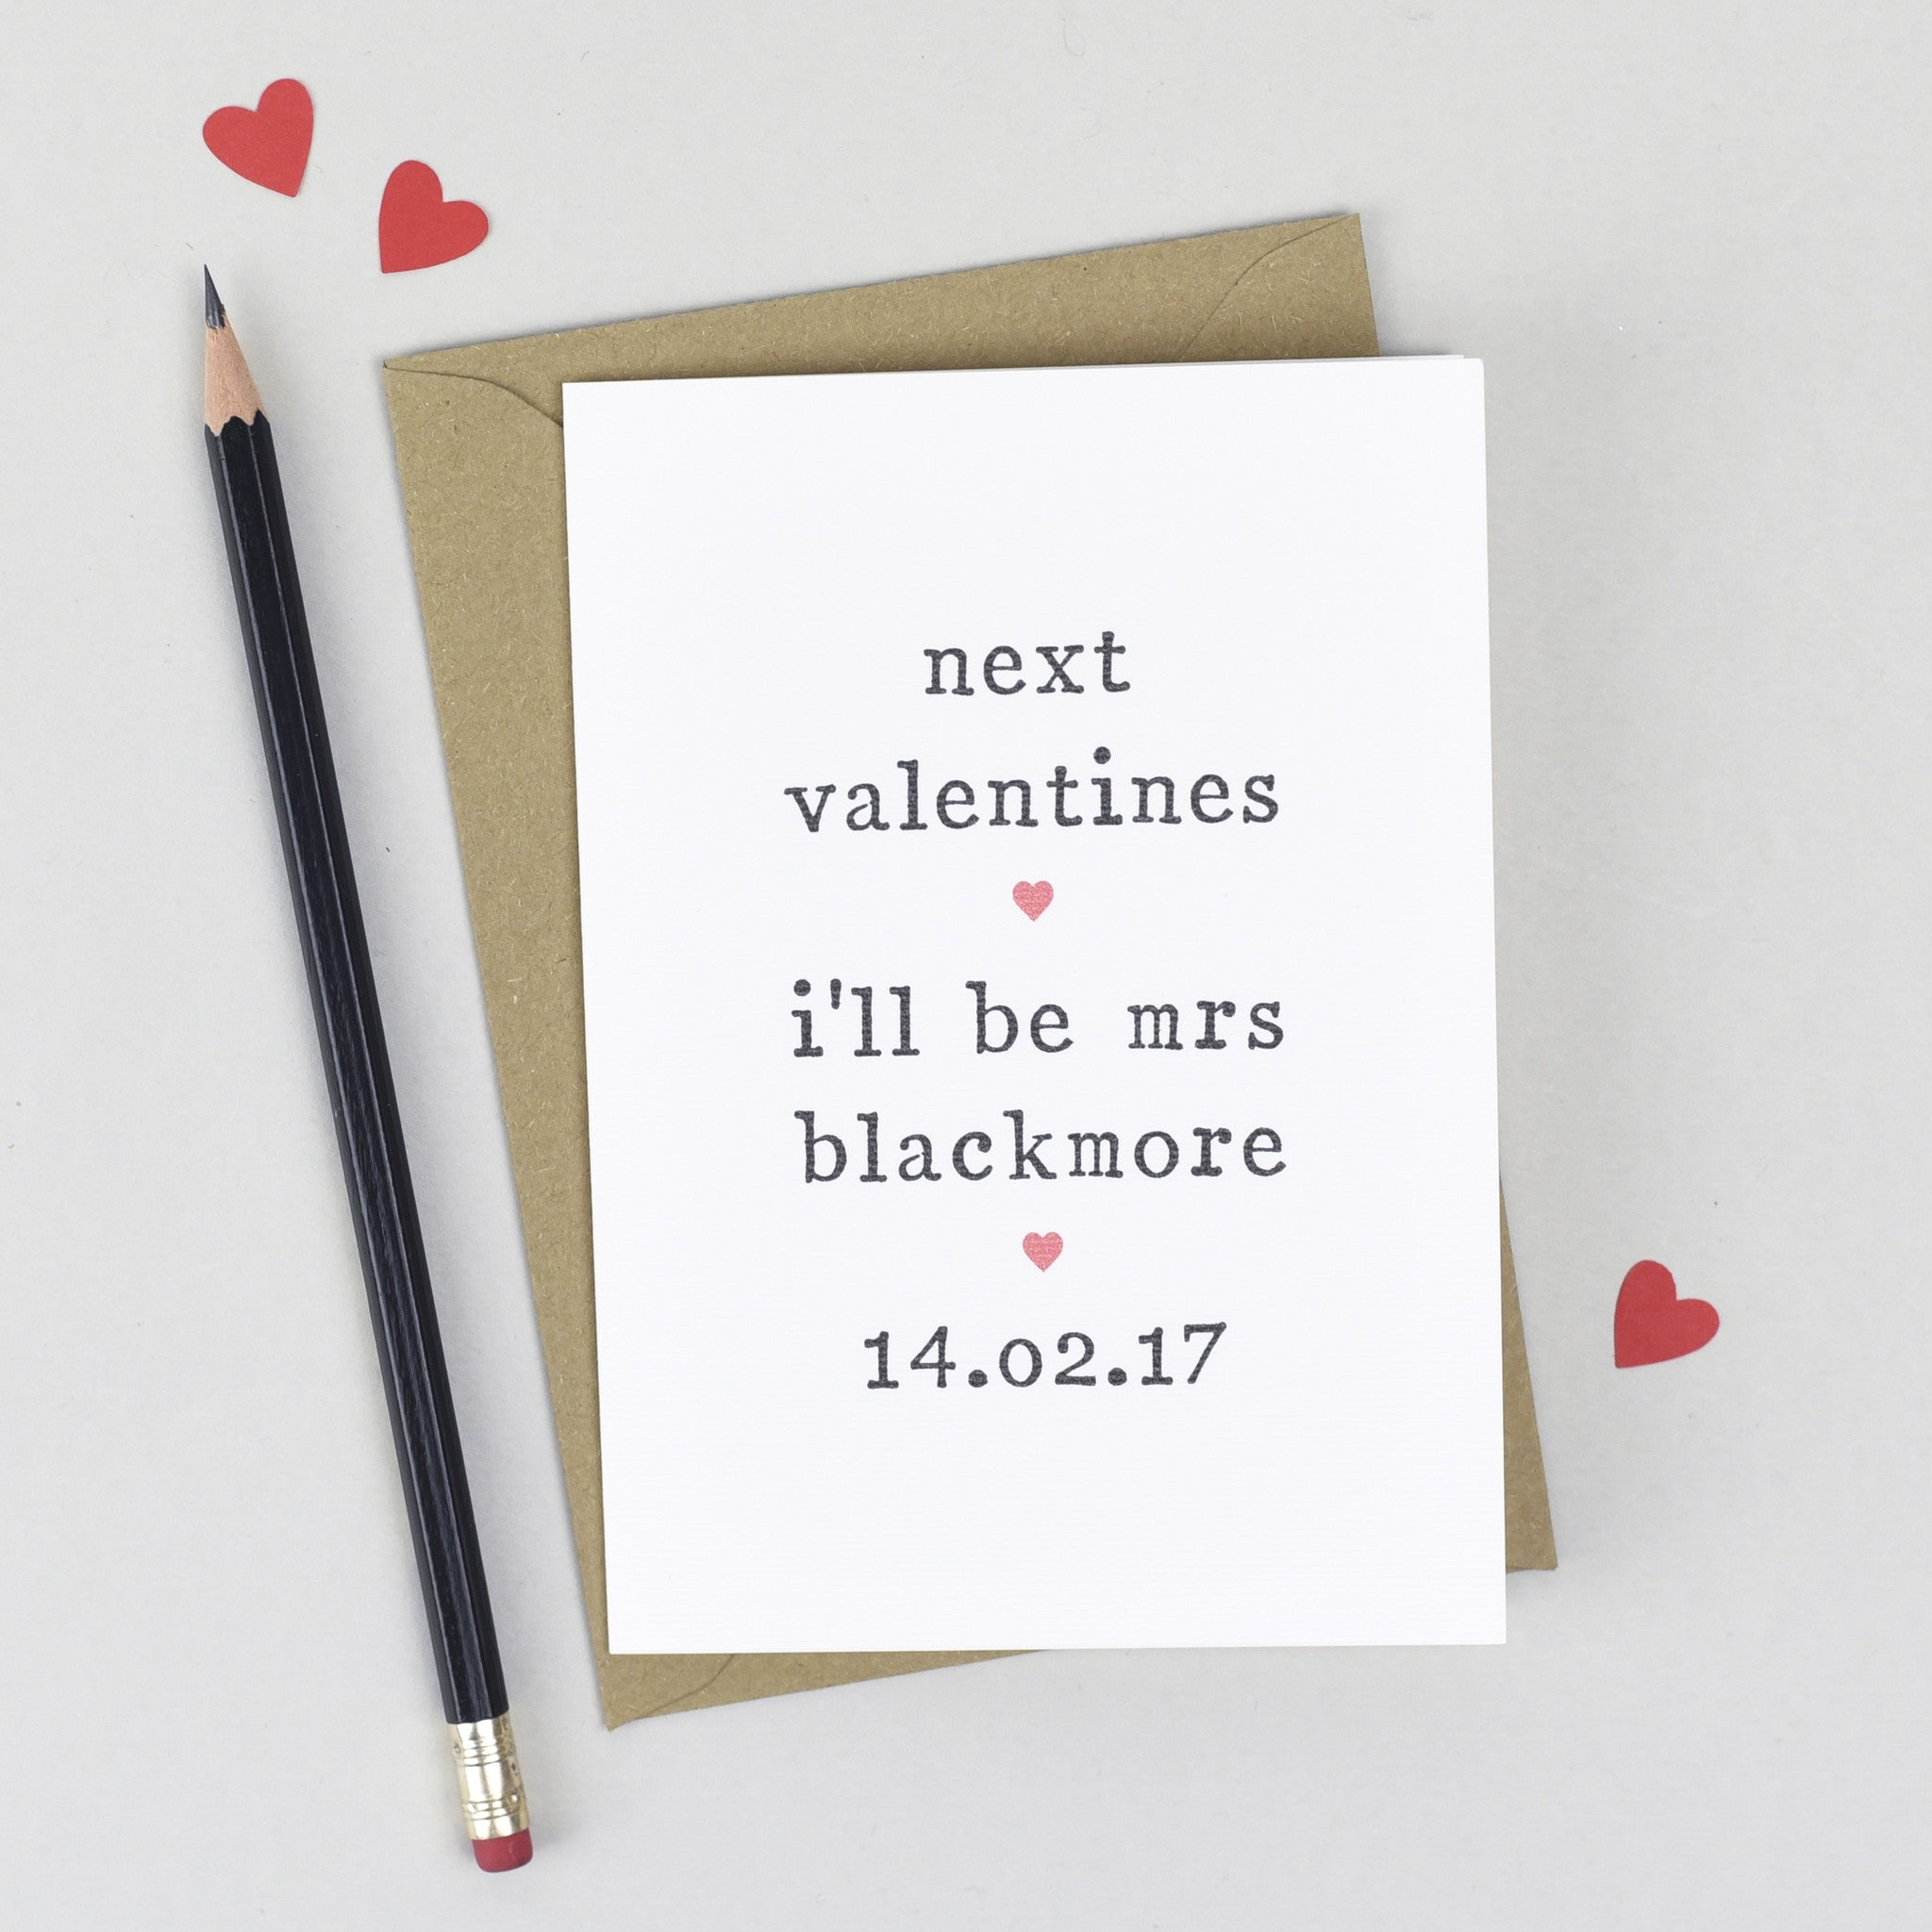 next
valentines
i'll be mrs
blackmore
14.02.17